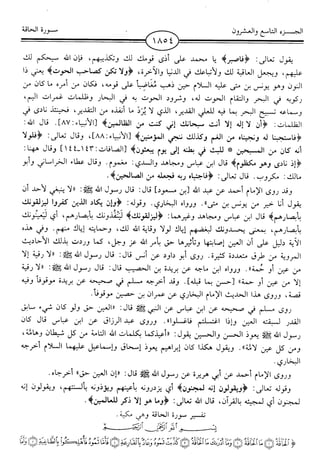 الجزء التاسع والعشرون
١٨٥٤
سورة الحاقة
يقول تعالى: ﴿فاصبر﴾ يا محمد على أذى قومك لك وتكذيبهم، فإن الله سيحكم لك
عليهم، ويجعل العاقبة لك ولأتباعك في الدنيا والآخرة، ﴿ولا تكن كصاحب الحوت﴾ يعني ذا
النون وهو يونس بن متى عليه السلام حين ذهب مغاضباً على قومه، فكان من أمره ما كان من
ركوبه في البحر والتقام الحوت له، وشرود الحوت به في البحار وظلمات غمرات اليم،
وسماعه تسبيح البحر بما فيه للعلي القدير، الذي لا يُرَدّ ما أنفذه من التقدير، فحينئذ نادى في
الظلمات: ﴿أن لا إله إلا أنت سبحانك إني كنت من الظالمين﴾ [الأنبياء: ٨٧]. قال الله:
﴿فاستجبنا له ونجيناه من الغم وكذلك ننجي المؤمنين﴾ [الأنبياء: ٨٨]، وقال تعالى: ﴿فلولا
أنه كان من المسبحين * للبث في بطنه إلى يوم يبعثون﴾ [الصافات: ١٤٣ـ١٤٤] وقال ههنا:
﴿إذ نادى وهو مكظوم﴾ قال ابن عباس ومجاهد والسدي: مغموم. وقال عطاء الخراساني وأبو
مالك: مكروب. قال تعالى: ﴿فاجتباه ربه فجعله من الصالحين﴾.
وقد روى الإمام أحمد عن عبد الله [بن مسعود] قال: قال رسول الله ﷺ: «لا ينبغي لأحد أن
يقول أنا خير من يونس بن متى». ورواه البخاري. وقوله: ﴿وإن يكاد الذين كفروا ليزلقونك
بأبصارهم﴾ قال ابن عباس ومجاهد وغيرهما: ﴿ليزلقونك﴾ لَيُنْفِذونك بأبصارهم، أي لَيَعينُونك
بأبصارهم، بمعنى يحسدونك لبغضهم إياك لولا وقاية الله لك، وحمايته إياك منهم. وفي هذه
الآية دليل على أن العين إصابتها وتأثيرها حق بأمر الله عز وجل، كما وردت بذلك الأحاديث
المروية من طرق متعددة كثيرة. روى أبو داود عن أنس قال: قال رسول الله ﷺ: «لا رقية إلا
من عين أو حُمة». وروى ابن ماجه عن بريدة بن الحصيب قال: قال رسول الله ﷺ: «لا رقية
إلا من عين أو حمة» [حسن بما قبله]. وقد أخرجه مسلم في صحيحه عن بريدة موقوفاً وفيه
قصة، وروى هذا الحديث الإمام البخاري عن عمران بن حصين موقوفاً.
روى مسلم في صحيحه عن ابن عباس عن النبي ﷺ قال: «العين حق ولو كان شيء سابق
القدر لسبقته العين وإذا اغتسلتم فاغسلوا». وروى عبد الرزاق عن ابن عباس قال كان
رسول الله ﷺ يعوذ الحسن والحسين يقول: «أعيذكما بكلمات الله التامة من كل شيطان وهامَّة،
ومن كل عين لامَّة». ويقول هكذا كان إبراهيم يعوذ إسحاق وإسماعيل عليهما السلام أخرجه
البخاري.
وروى الإمام أحمد عن أبي هريرة عن رسول الله ﷺ قال: «إن العين حق» أخرجاه.
وقوله تعالى: ﴿ويقولون إنه لمجنون﴾ أي يزدرونه بأعينهم ويؤذونه بألسنتهم، ويقولون إنه
لمجنون أي لمجيئه بالقرآن، قال الله تعالى: ﴿وما هو إلا ذكر للعالمين﴾.
تفسير سورة الحاقة وهي مكية.